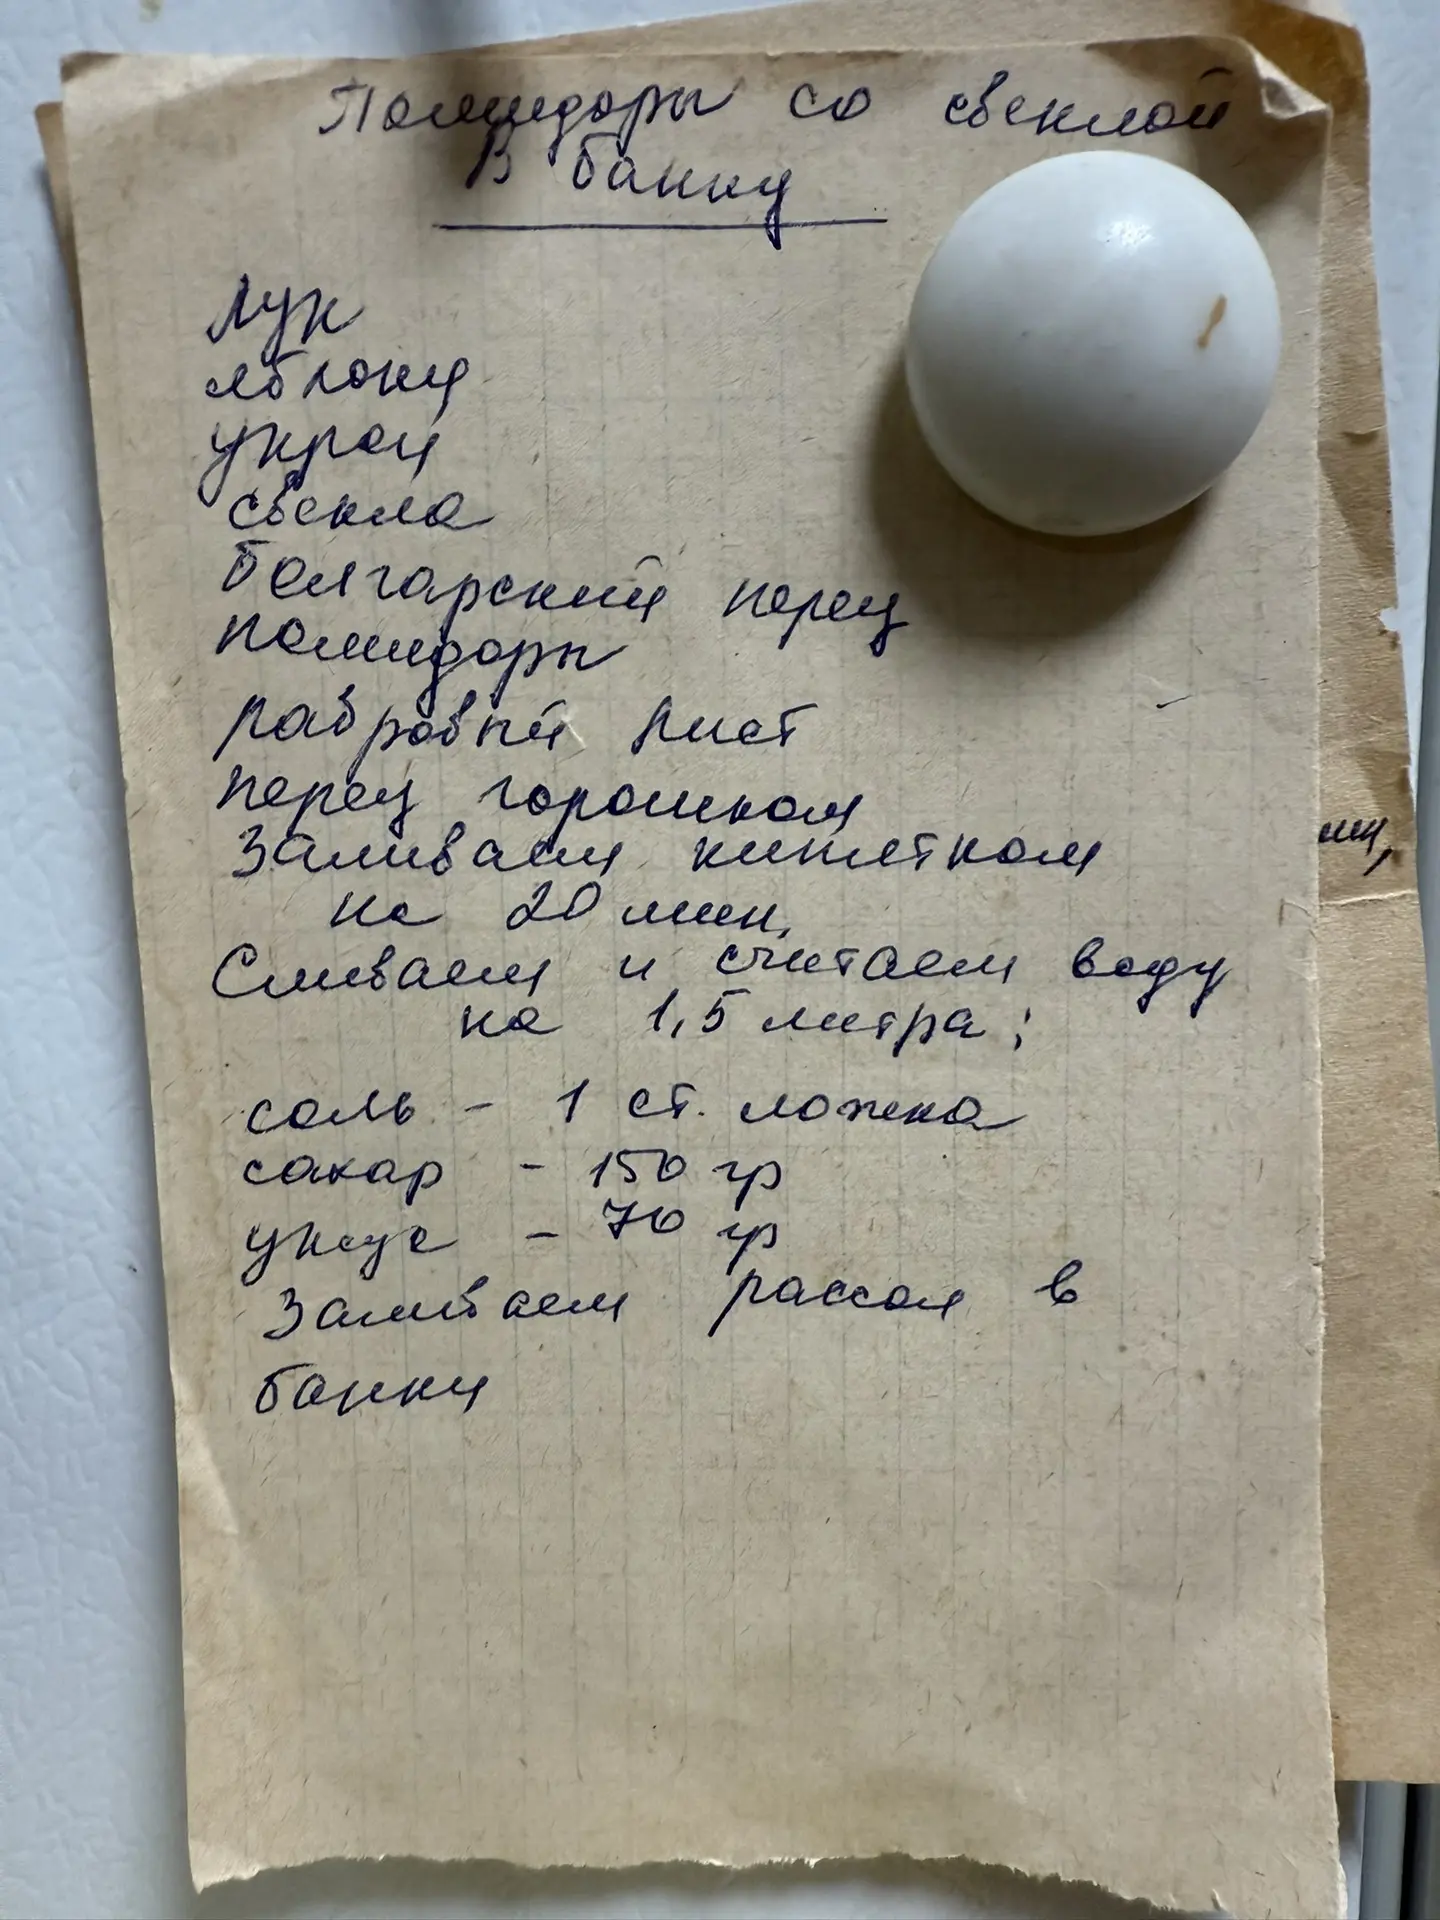 Помидоры со свеклой
В банку
Лук
яблоки
укроп
свекла
болгарский перец
помидоры
лавровый лист
перец горошком
Заливаем кипятком
на 20 мин.
Сливаем и считаем воду
на 1,5 литра:
соль - 1 ст. ложка
сахар - 150 гр
уксус - 70 гр
Заливаем рассол в
банки